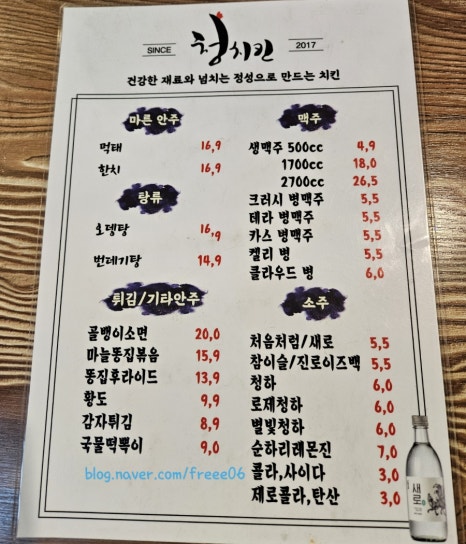 SINCE 청치킨 2017
건강한 재료와 넘치는 정성으로 만드는 치킨
마른 안주
먹태 16,9
한치 16,9
탕류
오뎅탕 16,9
번데기탕 14,9
튀김/기타안주
골뱅이소면 20,0
마늘똥집볶음 15,9
똥집후라이드 13,9
황도 9,9
감자튀김 8,9
국물떡뽁이 9,0
맥주
생맥주 500cc 4,9
1700cc 18,0
2700cc 26,5
크러시 병맥주 5,5
테라 병맥주 5,5
카스 병맥주 5,5
켈리 병 5,5
클라우드 병 6,0
소주
처음처럼/새로 5,5
참이슬/진로이즈백 5,5
청하 6,0
로제청하 6,0
별빛청하 6,0
순하리레몬진 7,0
콜라,사이다 3,0
제로콜라,탄산 3,0
새로
blog.naver.com/freee06